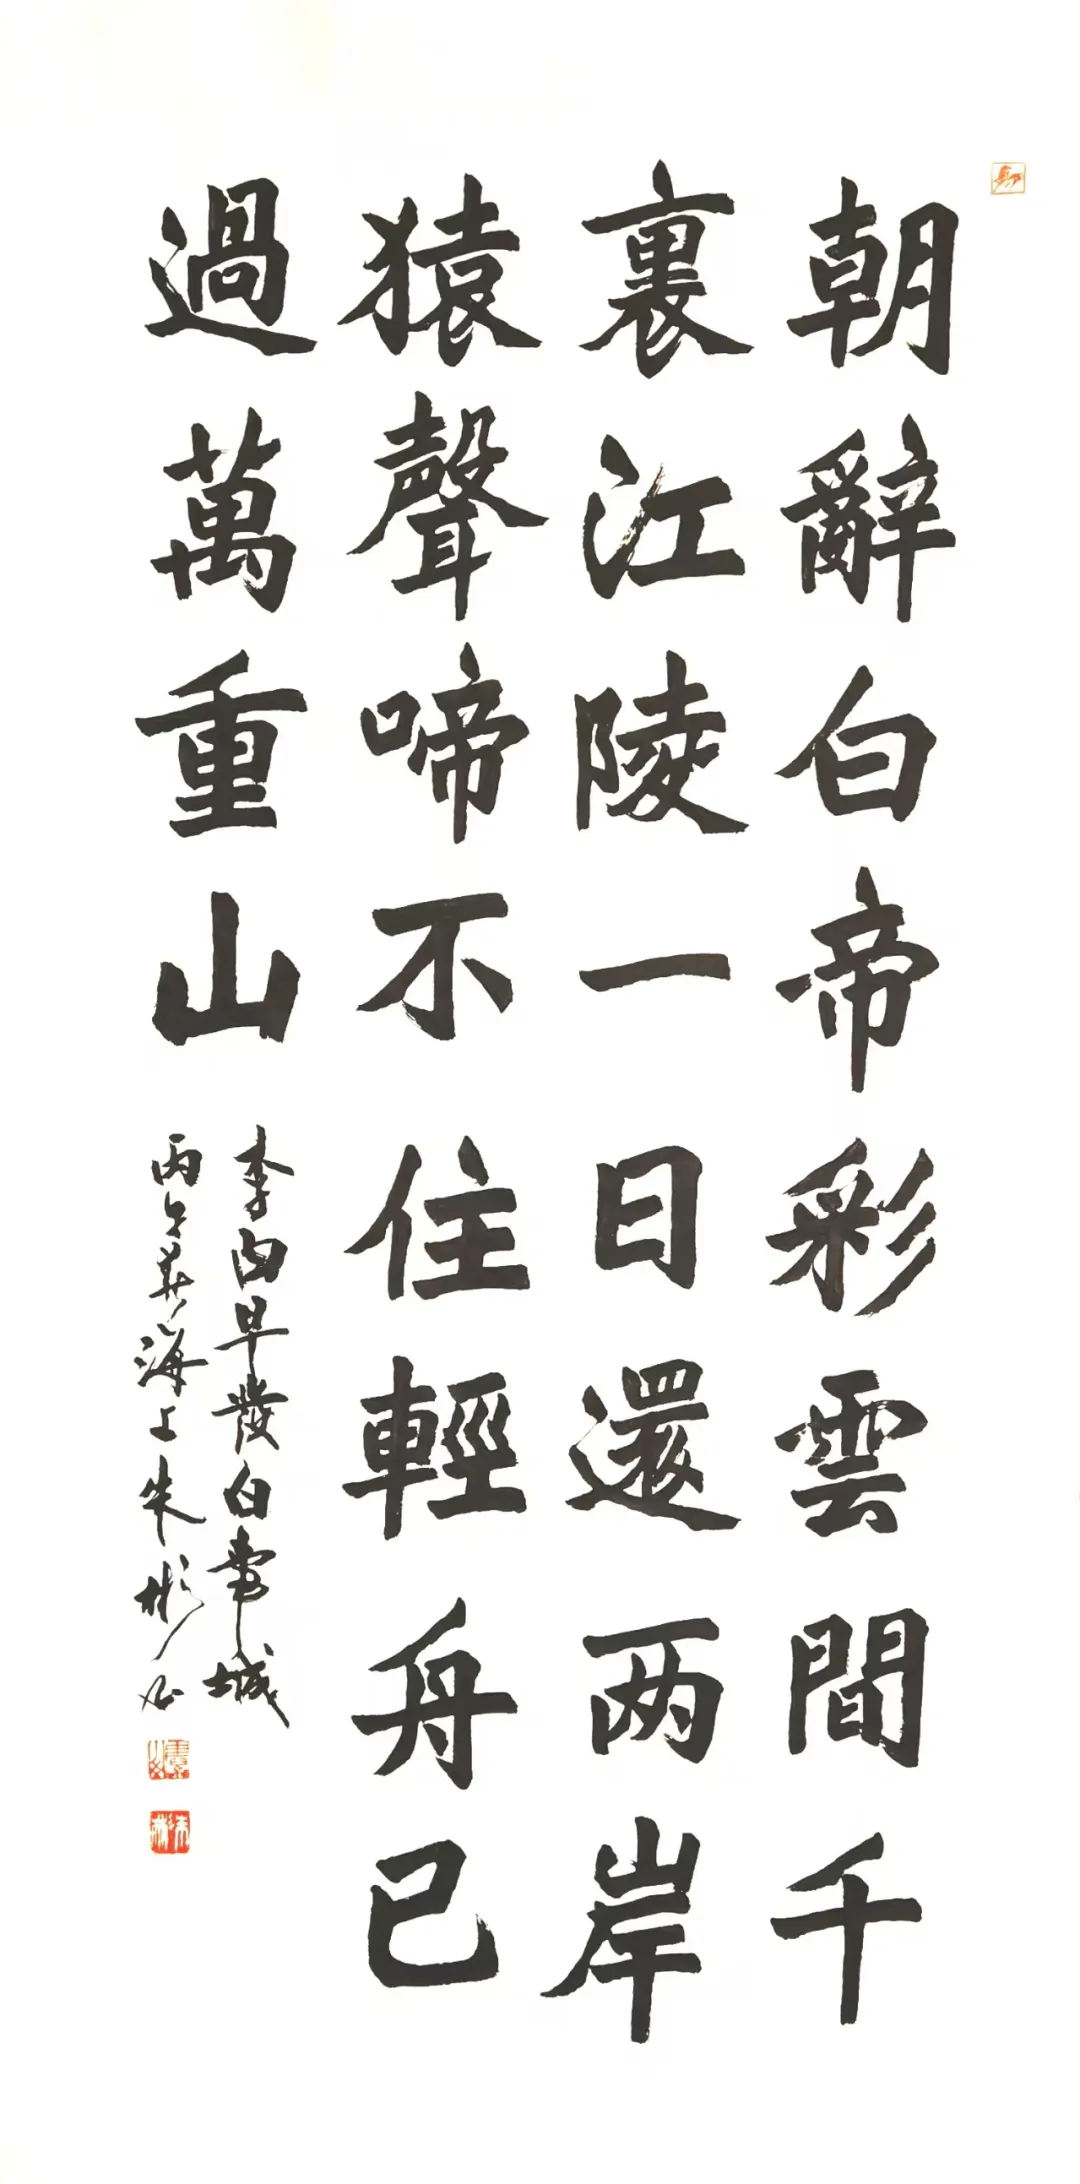 朝辭白帝彩雲間千
裏江陵一日還两岸
猿聲啼不住輕舟已
過萬重山
李白早發白帝城
丙午 海上朱彬